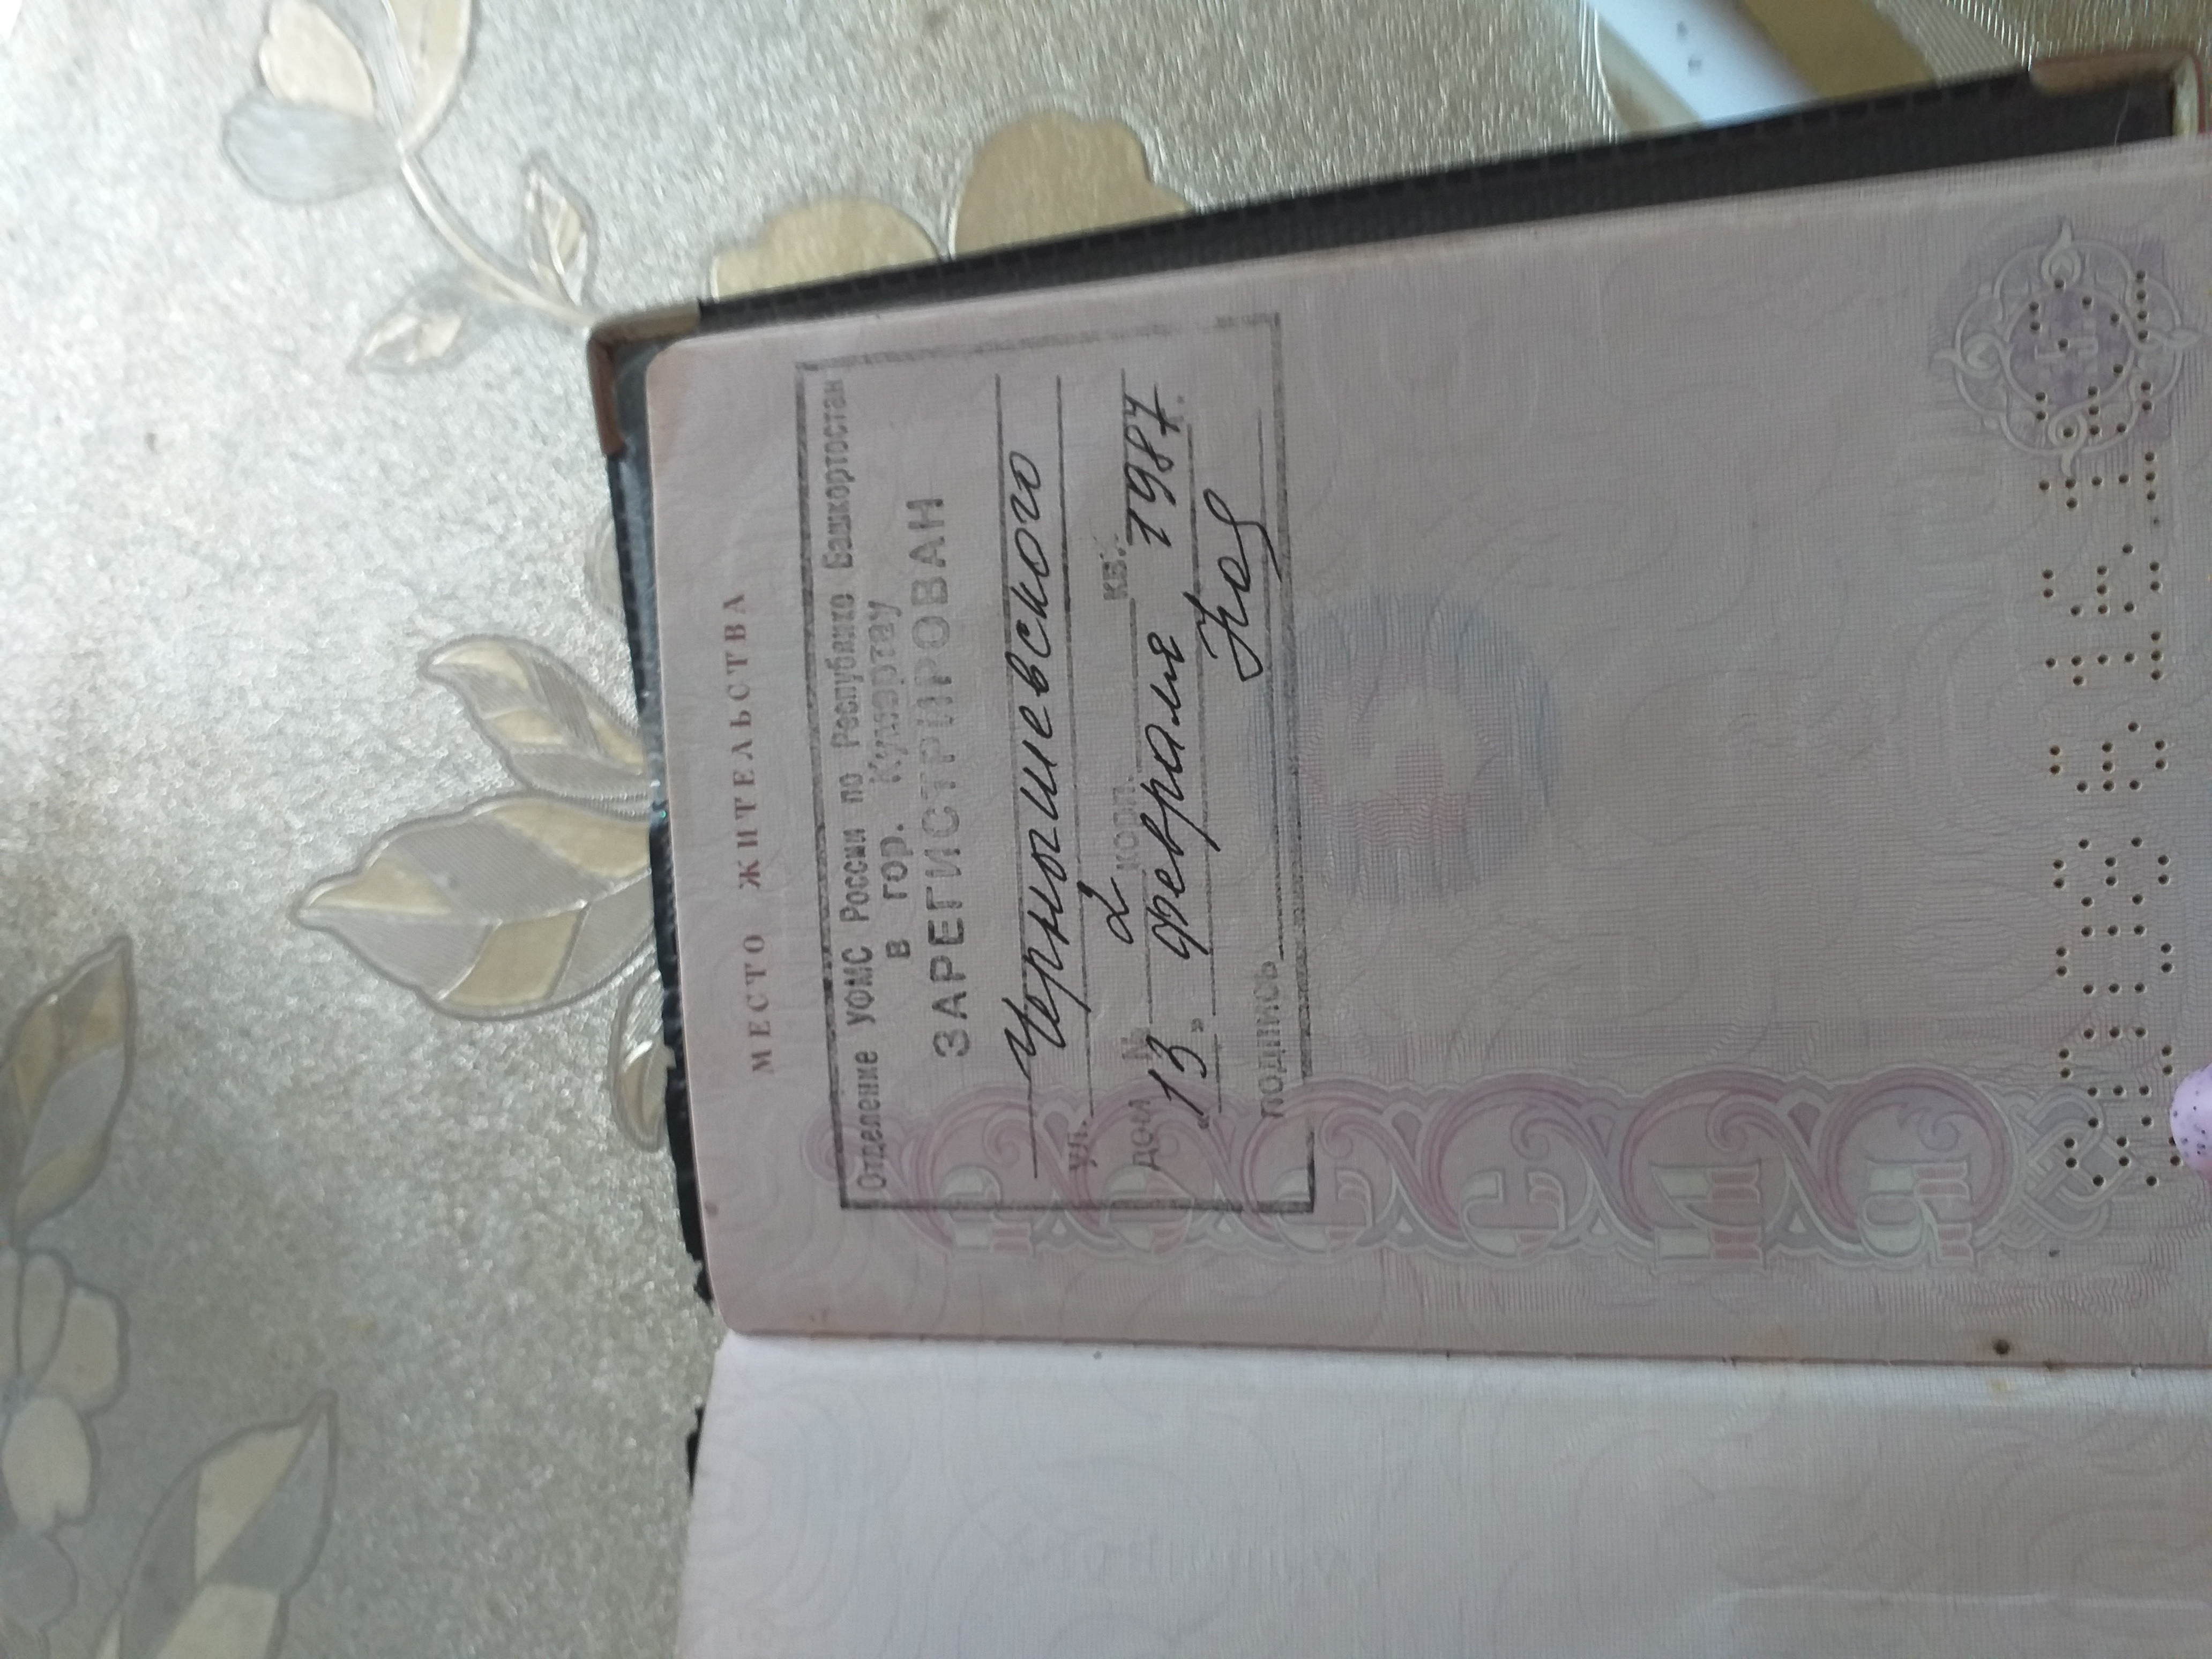 МЕСТО ЖИТЕЛЬСТВА
Отделение УФМС России по Республике Башкортостан
в гор. Кумертау
ЗАРЕГИСТРИРОВАН
ул. Чернышевского
дом № 2 корп. кв.
«13» февраля 1987 г.
подпись
РОССИЯ